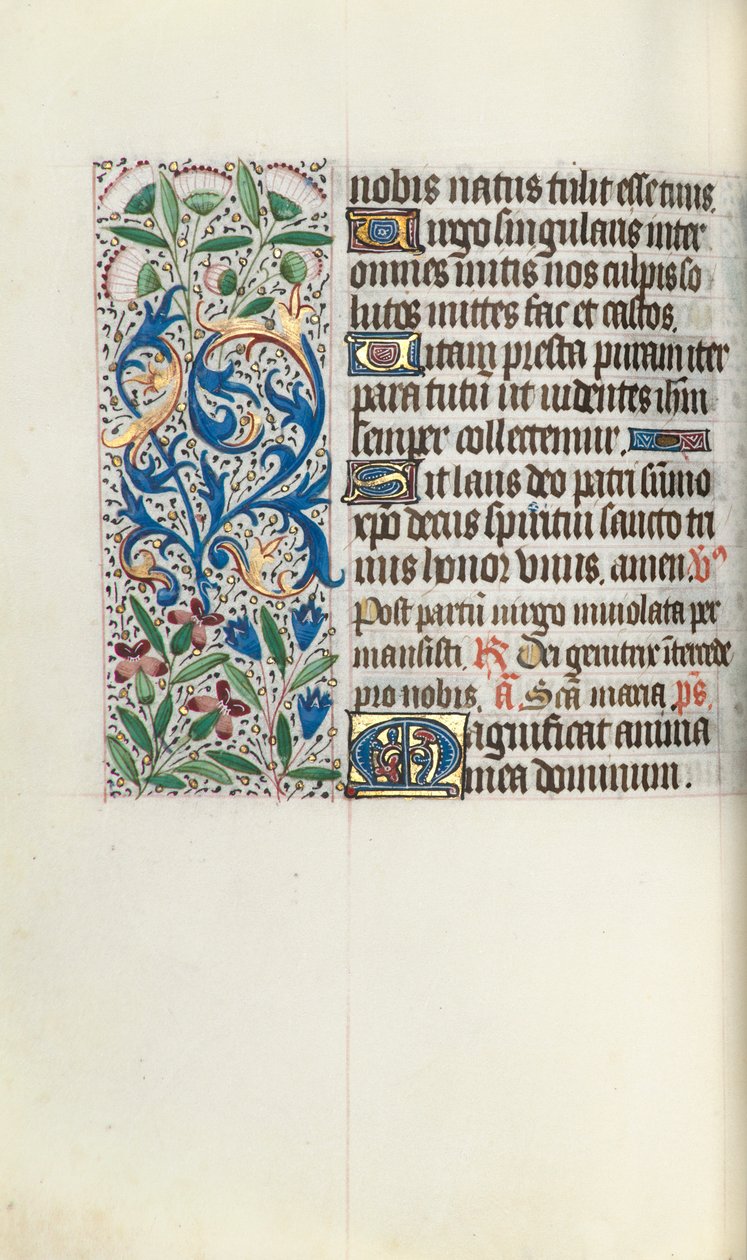 nobis natus tulit esse tuus.
Uirgo singularis inter
omnes mitis nos culpis so
lutos mittes fac et castos.
Uitam presta puram iter
para tutū ut uidentes ihm̄
semper collectemur.
Sit laus deo patri sūmo
xp̄o decus spiritui sancto tri
nus honor vnus. amen. V̄
Post partū uirgo inuiolata per
mansisti. R Dei genitrix ītercede
pro nobis. ā Scā maria. ps̄.
Magnificat anima
mea dominum.